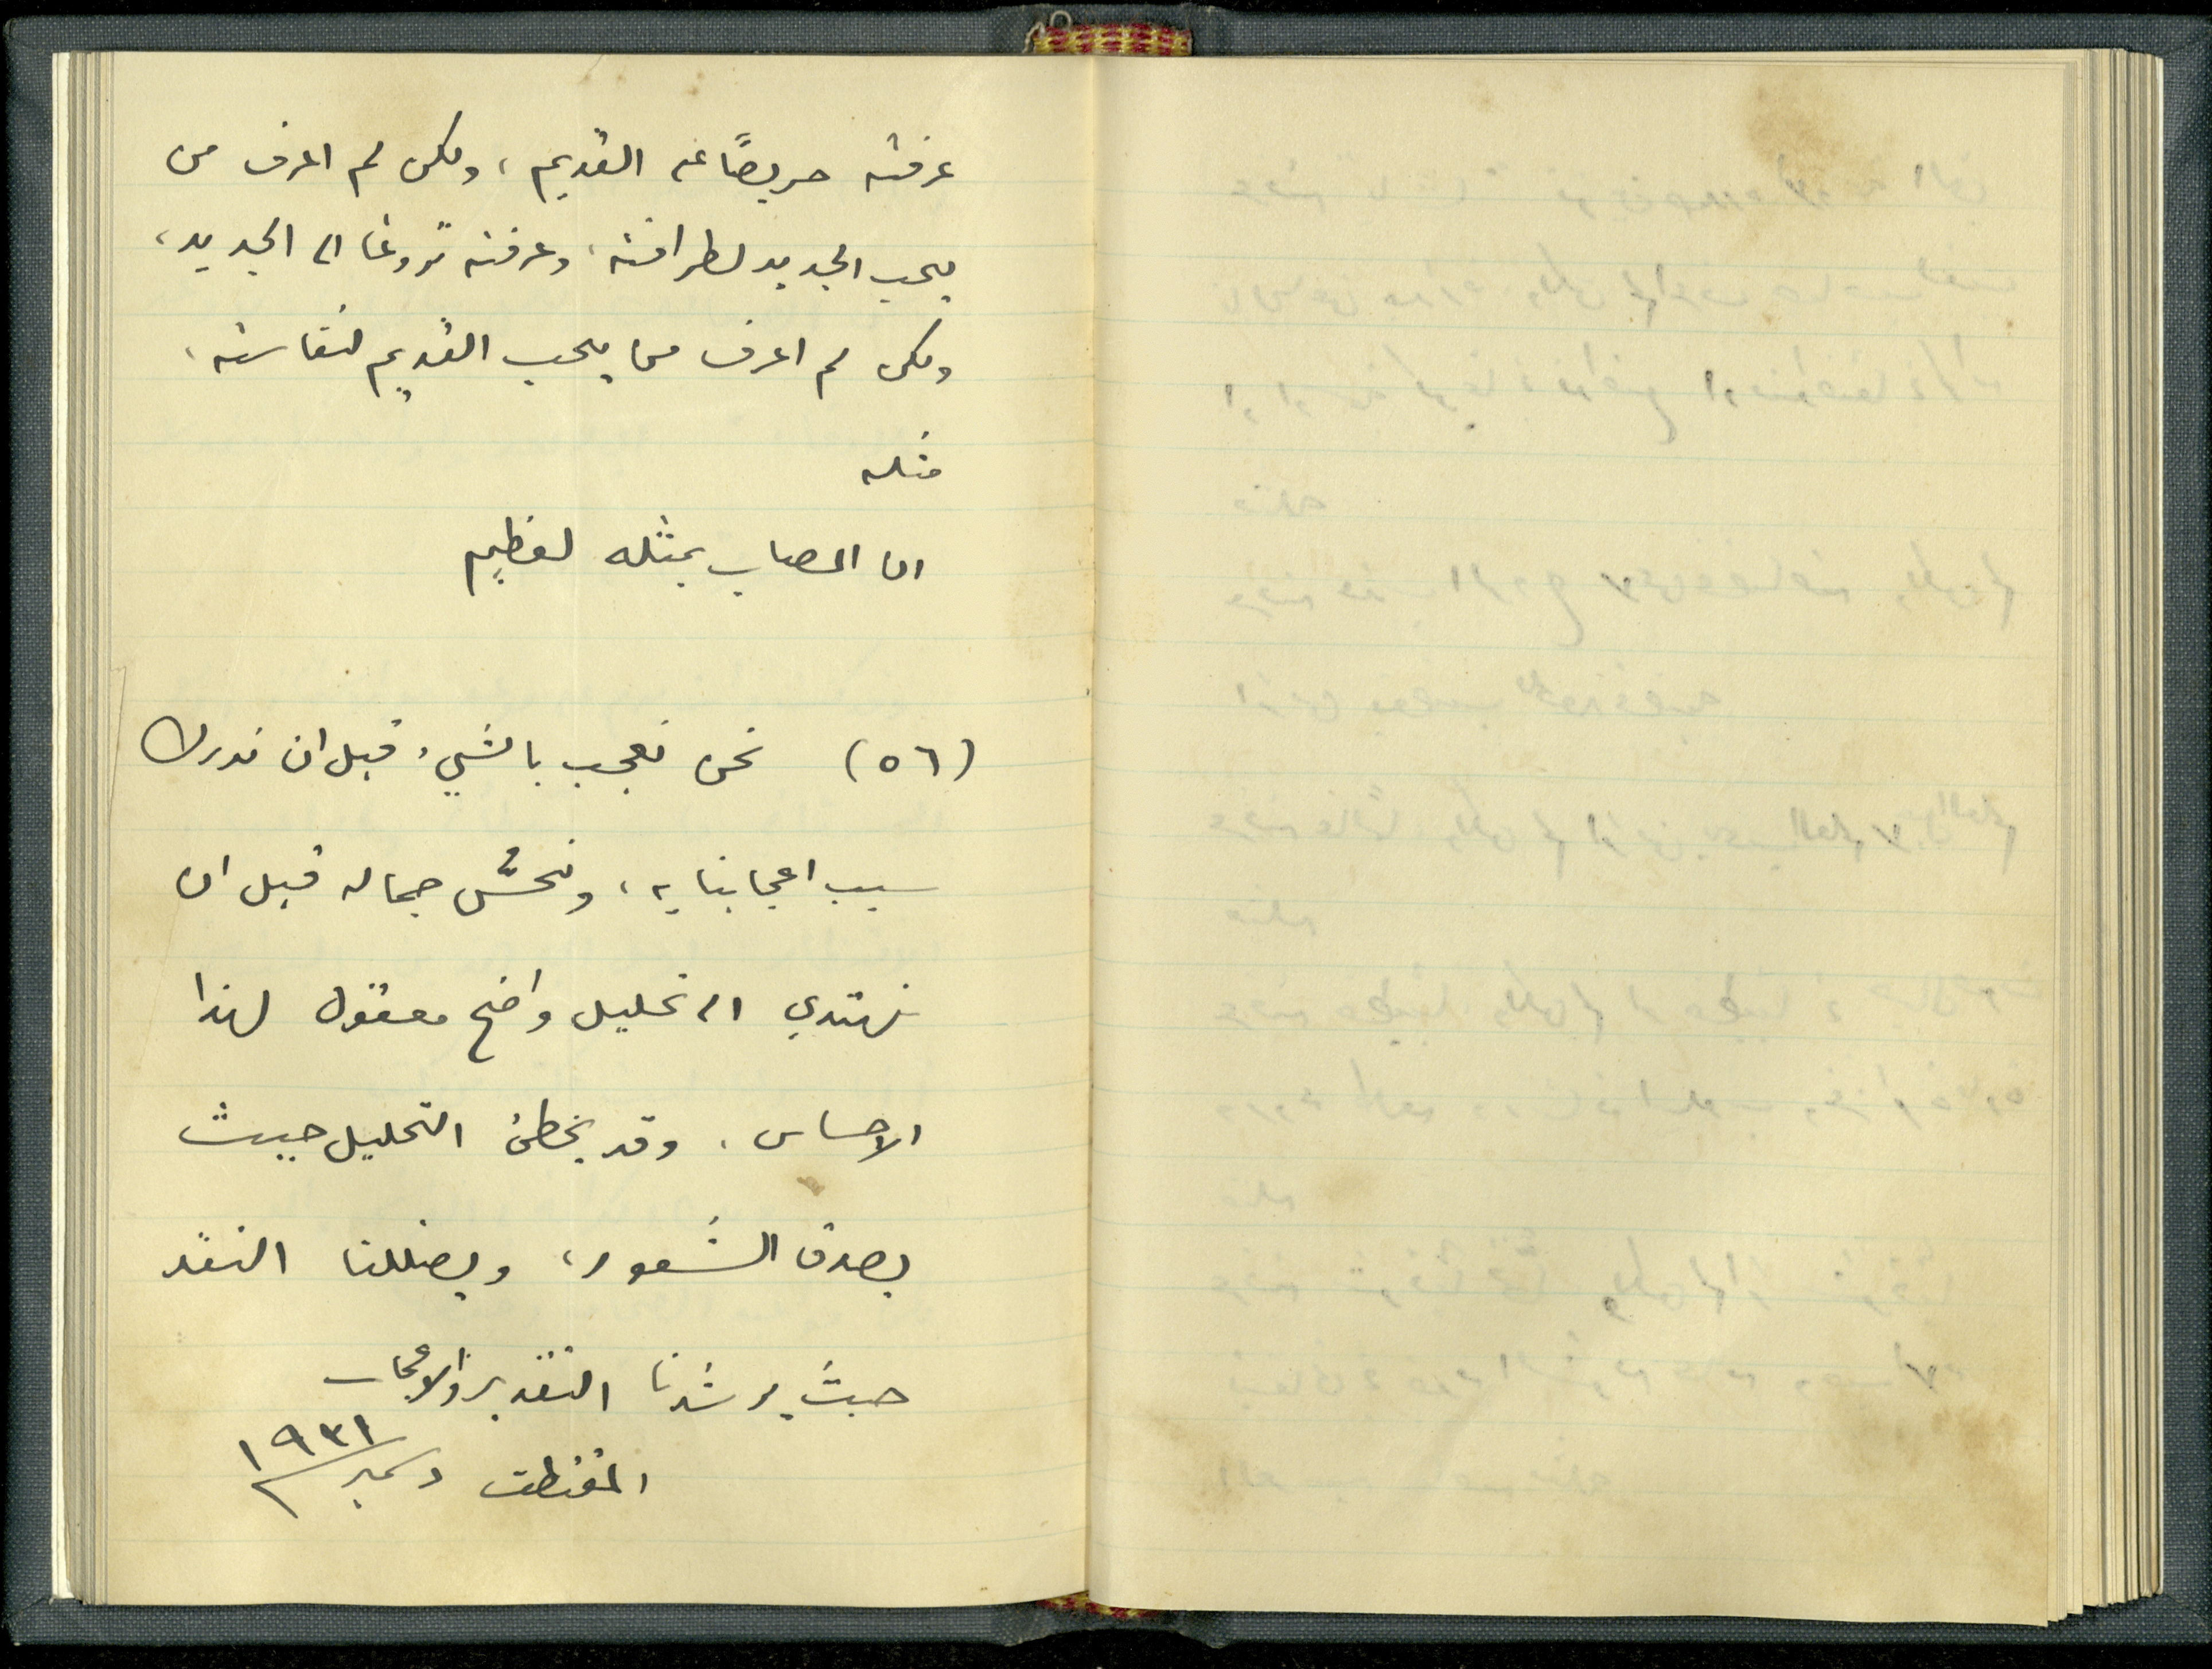 عرفته حريصًا على القديم، ولكن لم اعرف من
يحب الجديد لطرافته، وعرفته نزوعا الى الجديد،
ولكن لم اعرف من يحب القديم لنفاسته،
مثله
ان المصاب بمثله لعظيم
(٥٦) نحن نعجب بالشيء قبل ان ندرك
سبب اعجابنا به، ونحسُّ جماله قبل ان
نهتدي الى تحليل واضح معقول لهذا
الاحساس. وقد يخطئ التحليل حيث
يصدق الشعور، ويضللنا النقد
حيث يرشدنا التقدير والاعجاب
المقتطف دسمبر ١٩٣١